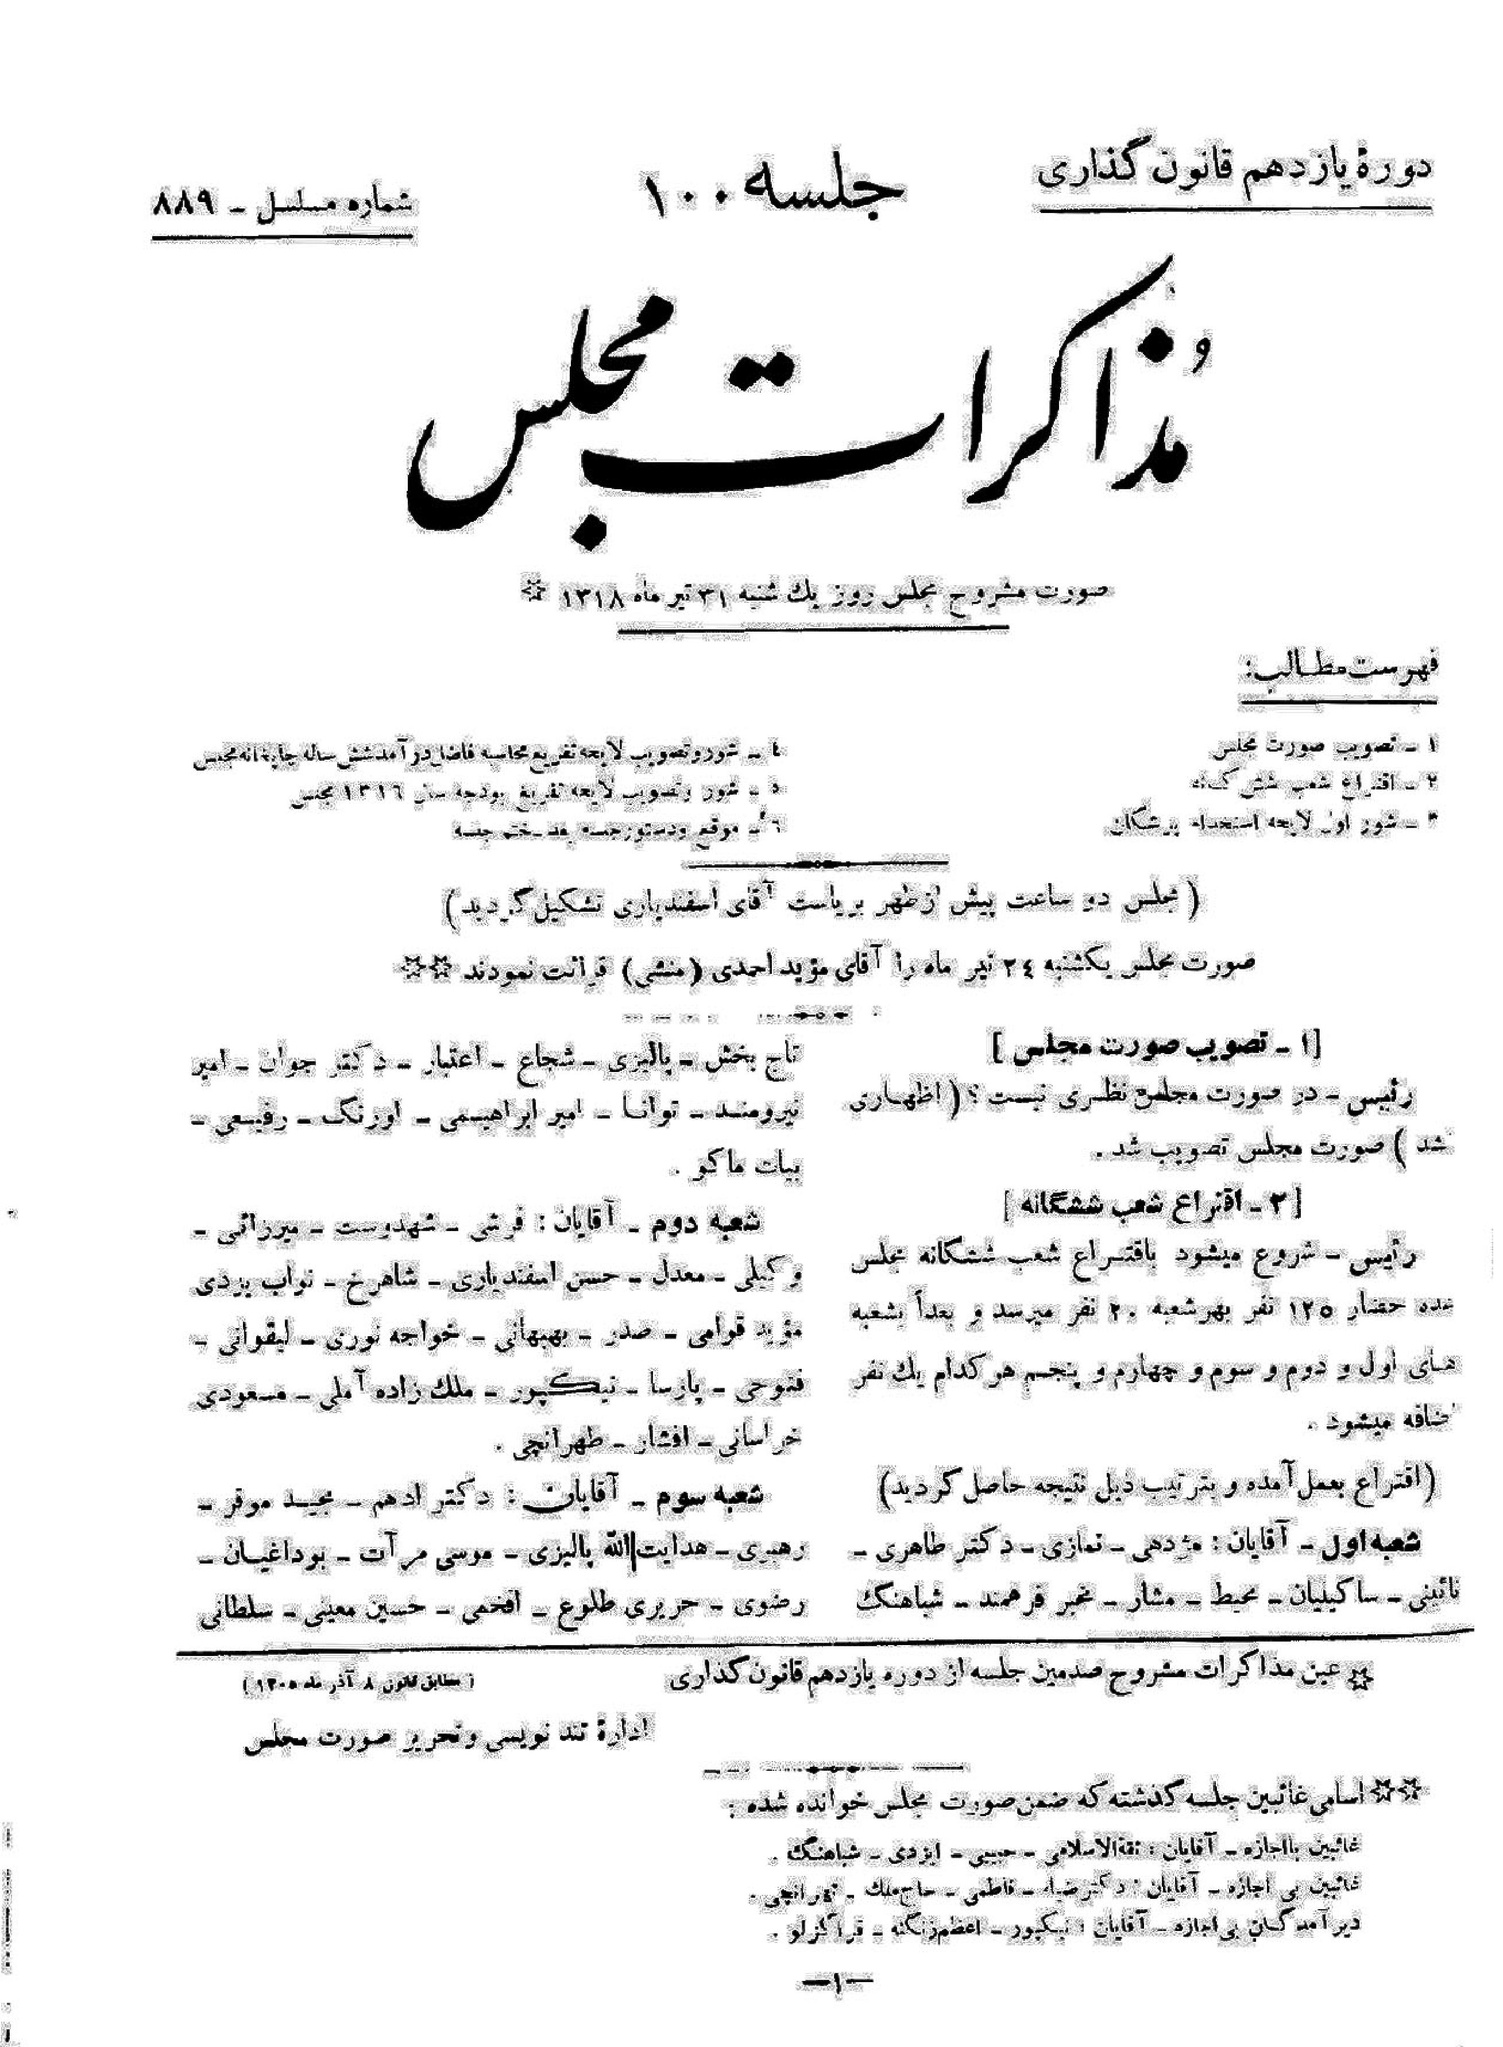 دورهٔ یازدهم قانون گذاری
جلسه ۱۰۰
شماره مسلسل ـ ۸۸۹
مذاکرات مجلس
صورت مشروح مجلس روز یك شنبه ۳۱ تیر ماه ۱۳۱۸ ☆
فهرست مطالب:
۱ ـ تصویب صورت مجلس
۲ ـ اقتراع شعب شش گانه
۳ ـ شور اول لایحه استخدام پزشگان
٤ ـ شور و تصویب لایحه تفریغ محاسبه فاضل درآمد شش ساله چاپخانه مجلس
٥ ـ شور و تصویب لایحه تفریغ بودجه سال ۱۳۱٦ مجلس
٦ ـ موقع و دستور جلسه بعد ـ ختم جلسه
( مجلس دو ساعت پیش از ظهر بریاست آقای اسفندیاری تشکیل گردید )
صورت مجلس یکشنبه ۲٤ تیر ماه را آقای مؤید احمدی (منشی) قرائت نمودند ☆☆
[۱ ـ تصویب صورت مجلس ]
رئیس ـ در صورت مجلس نظری نیست ؟ ( اظهاری
نشد ) صورت مجلس تصویب شد .
[ ۲ ـ اقتراع شعب ششگانه ]
رئیس ـ شروع میشود باقتراع شعب ششگانه مجلس
عده حضار ۱۲٥ نفر بهرشعبه ۲۰ نفر میرسد و بعداً بشعبه
های اول و دوم و سوم و چهارم و پنجم هر کدام یك نفر
اضافه میشود .
(اقتراع بعمل آمده و بترتیب ذیل نتیجه حاصل گردید)
شعبه اول ـ آقایان : مژدهی ـ نمازی ـ دکتر طاهری ـ
نائینی ـ ساکینیان ـ محیط ـ مشار ـ مخبر فرهمند ـ شباهنگ
تاج بخش ـ پالیزی ـ شجاع ـ اعتبار ـ دکتر جوان ـ امیر
نیرومند ـ توانا ـ امیر ابراهیمی ـ اورنگ ـ رفیعی ـ
بیات ماکو .
شعبه دوم ـ آقایان : فرشی ـ شهدوست ـ میرزائی ـ
وکیلی ـ معدل ـ حسن اسفندیاری ـ شاهرخ ـ نواب یزدی
مؤید قوامی ـ صدر ـ بهبهانی ـ خواجه نوری ـ لیقوانی ـ
فتوحی ـ پارسا ـ نیکپور ـ ملك زاده آملی ـ مسعودی
خراسانی ـ افشار ـ طهرانچی .
شعبه سوم ـ آقایان : دکتر ادهم ـ مجید موقر ـ
رهبری ـ هدایت الله پالیزی ـ موسی مرآت ـ بوداغیان ـ
رضوی ـ حریری طلوع ـ افخمی ـ حسین معینی ـ سلطانی
☆ عین مذاکرات مشروح صدمین جلسه از دوره یازدهم قانون گذاری
( مطابق قانون ۸ آذر ماه ۱۳۰٥ )
ادارهٔ تند نویسی و تحریر صورت مجلس
☆☆ اسامی غائبین جلسه گذشته که ضمن صورت مجلس خوانده شده :
غائبین با اجازه ـ آقایان : ثقةالاسلامی ـ حبیبی ـ ایزدی ـ شباهنگ .
غائبین بی اجازه ـ آقایان : دکتر ضیاء ـ فاطمی ـ حاج ملك ـ تهرانچی .
دیر آمدگان بی اجازه ـ آقایان : نیکپور ـ اعظم زنگنه ـ قراگزلو .
—۱—